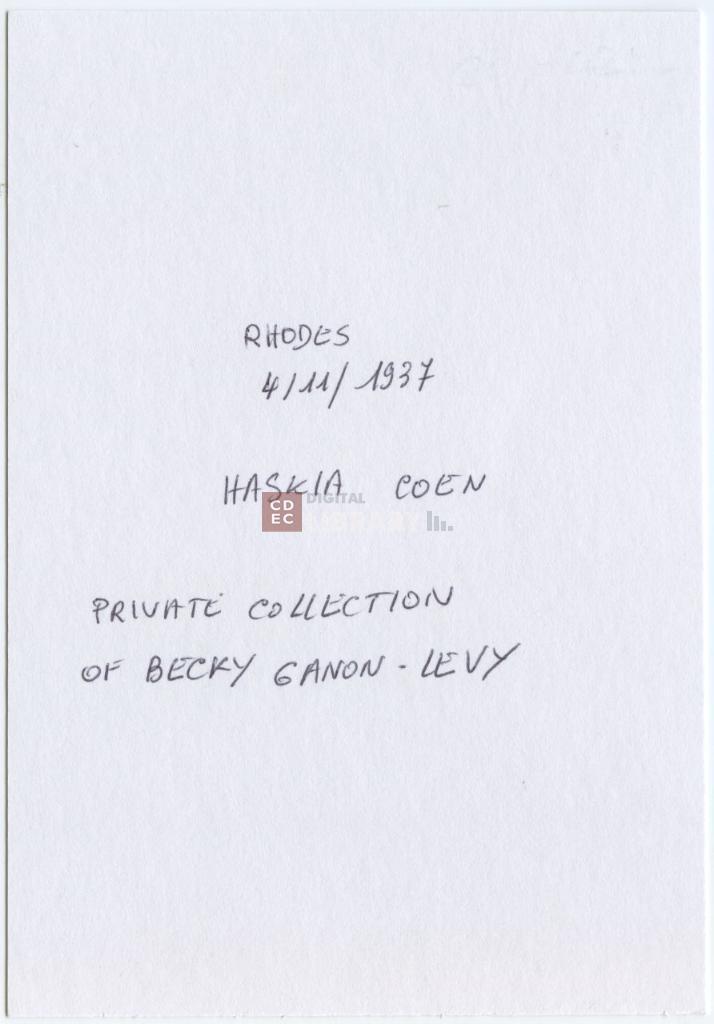 RHODES
4/11/1937
HASKIA COEN
CDEC DIGITAL LIBRARY
PRIVATE COLLECTION
OF BECKY GANON-LEVY